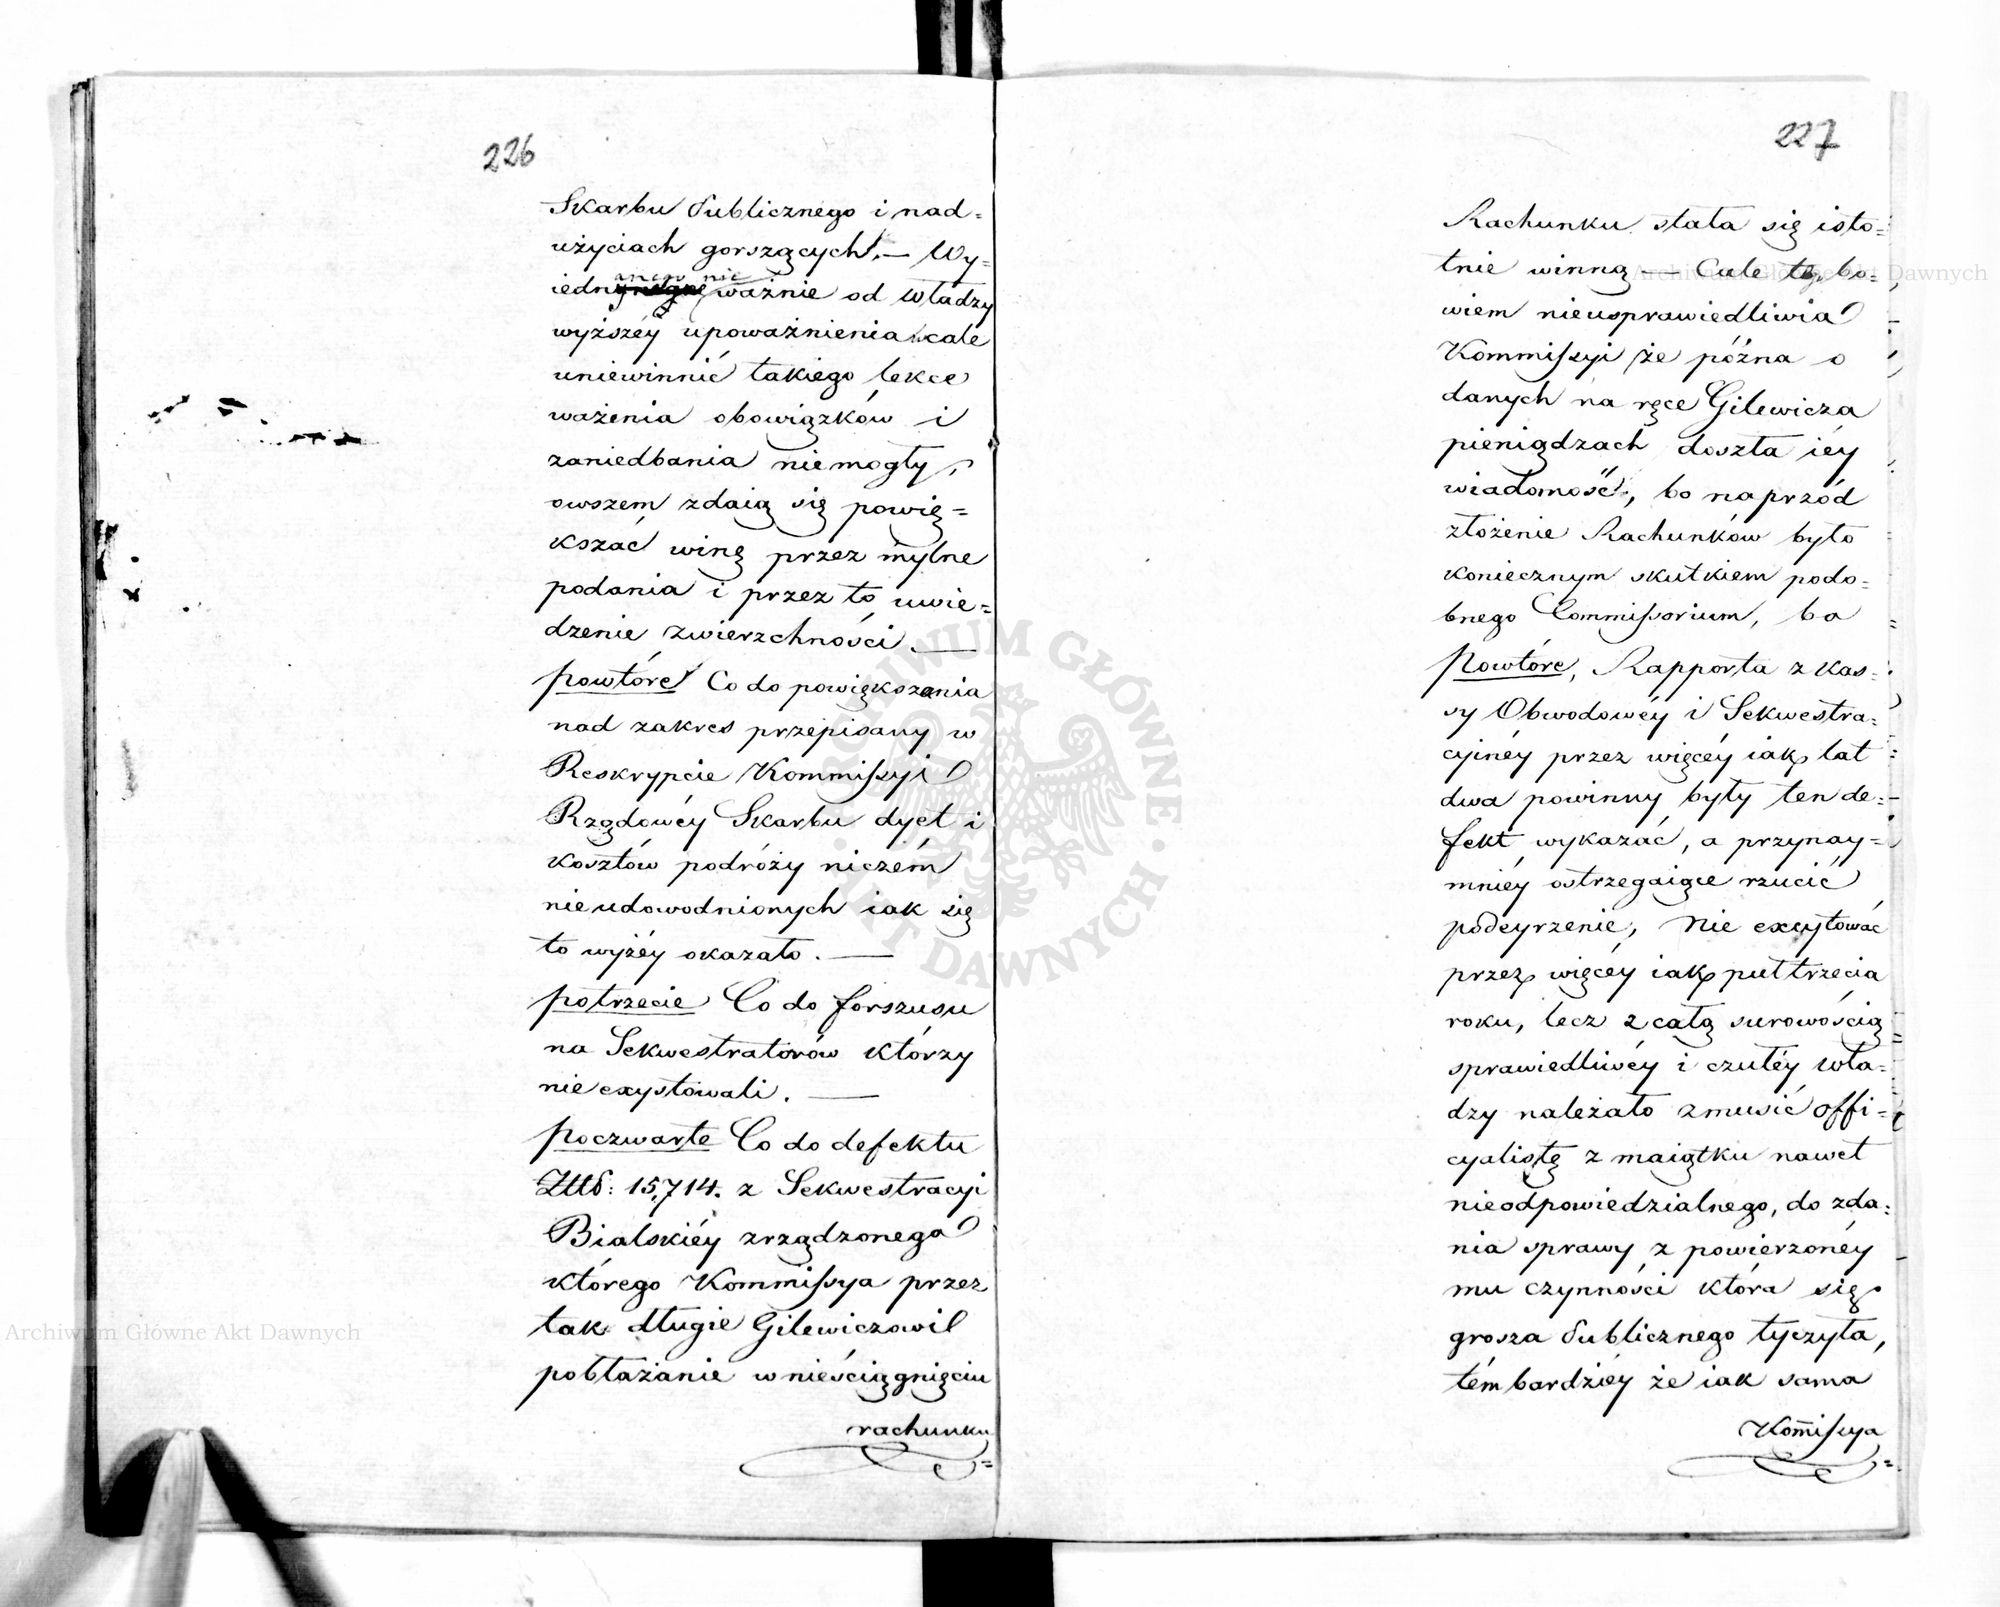 226
Skarbu Publicznego i nad=
użyciach gorszących. — Wy=
anego nie
iedn ważnie od Władzy
wyższéy upoważnienia wcale
uniewinnić takiego lekce
ważenia obowiązków i
zaniedbania niemogły,
owszem zdaią się powię=
kszać winę przez mylne
podania i przez to uwie=
dzenie zwierzchności. —
powtóre Co do powiększania
nad zakres przepisany w
Reskrypcie Kommissyi
Rządowéy Skarbu dyet i
kosztów podróży niczém
nieudowodnionych iak się
to wyżéy okazało. —
potrzecie Co do forszusu
na Sekwestratorów którzy
nieexystowali. —
poczwarte Co do defektu
Złtt: 15,714. z Sekwestracyi
Bialskiéy zrządzonego
którego Kommissya przez
tak długie Gilewiczowi
pobłażanie w nieściągnięciu
rachunku
227
Rachunku stała się isto=
tnie winną — Cale to bo=
wiem nieusprawiedliwia
Kommissyi że późna o
danych na ręce Gilewicza
pieniądzach doszła iéy
wiadomość, bo naprzód
złożenie Rachunków było
koniecznym skutkiem podo=
bnego Commissorium, bo
Powtóre, Rapporta z kas=
sy Obwodowéy i Sekwestra=
cyinéy przez więcéy iak lat
dwa powinny były ten de=
fekt wykazać, a przynay=
mniéy ostrzegaiące rzucić
podeyrzenie, Nie excytować
przez więcéy iak pułtrzecia
roku, lecz z całą surowością
sprawiedliwéy i czułéy wła=
dzy należało zmusić offi=
cyalistę z maiątku nawet
nieodpowiedzialnego, do zda=
nia sprawy z powierzonéy
mu czynności która się
grosza Publicznego tyczyła,
tém bardziéy że iak sama
Kom̄issya
Archiwum Główne Akt Dawnych
Archiwum Główne Akt Dawnych
ARCHIWUM GŁÓWNE · AKT DAWNYCH ·